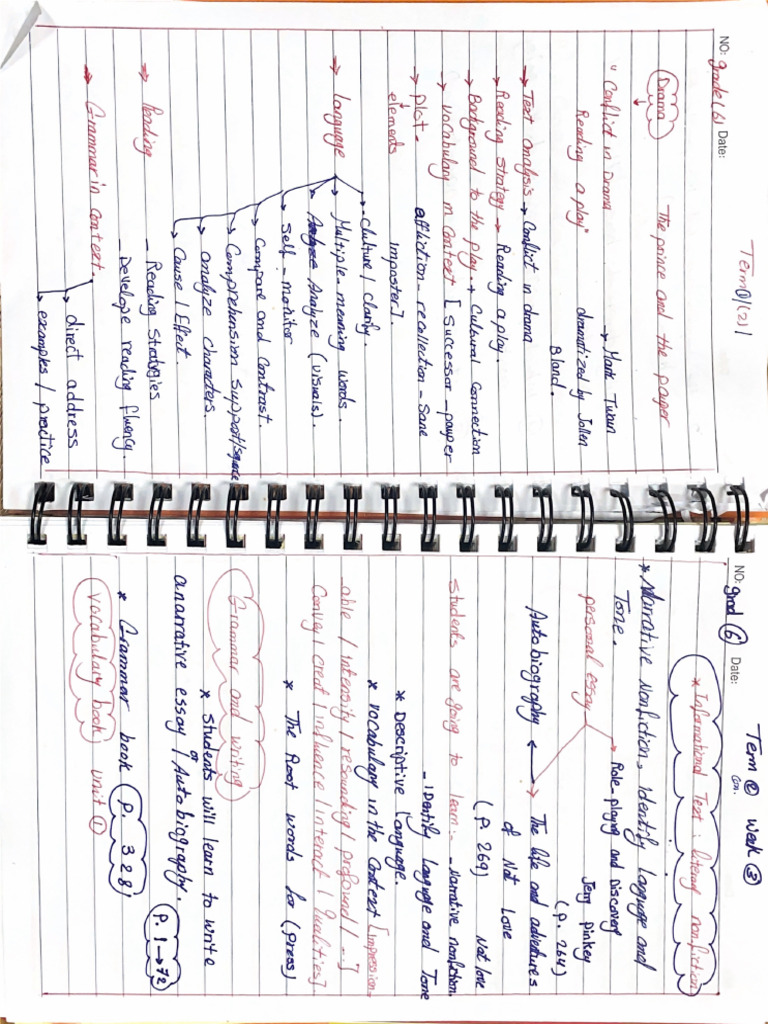 NO: grade (6) Date:
Term (1)/(2)/
Drama The prince and the pauper
"Conflict in Drama → Mark Twain
Reading a play" dramatized by Jollen
Bland.
→ Text analysis → Conflict in drama
→ Reading Strategy → Reading a play.
→ Background to the play → Cultural Connection
→ vocabulary in context [Successor - pauper
→ Plot - affliction - recollection - Sane
elements Imposter].
→ Language → Culture / Clarify.
→ Multiple-meaning words.
→ Analyze (visuals).
→ Self-monitor
→ Compare and Contrast.
→ Comprehension support/
→ analyze characters.
→ Cause / Effect.
→ Reading - Reading Strategies
- Develope reading fluency.
→ Grammar in Context. → direct address
→ examples / practice
NO: grad (6) Date:
Term (2) Week (3)
con.
* Informational Text: literary nonfiction
* Narrative Nonfiction, Identify Language and
Tone. → Role-playing and Discovery
personal essay Jerry pinkey
(P. 264)
Autobiography ↔ The life and adventures
of Nat Love
(P. 269) Nat love
Students are going to learn:- - Narrative nonfiction.
- IDentify Language and Tone
* Descriptive Language.
* vocabulary in the Context [impression
able / intensity / resounding / profound / ...]
Convey / creat / influence / interact / Qualities].
* The Root words for (press)
Grammar and writing
* Students will learn to write
a narrative essay / or Autobiography.
P. 1 → 72
* Grammar book P. 328
vocabulary book unit (1)